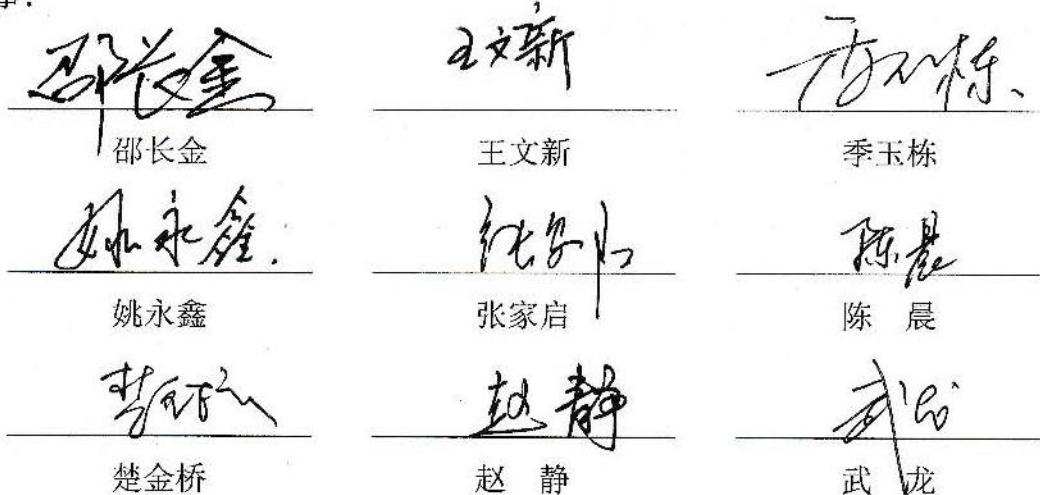 邵长金 王文新 季玉栋
邵长金 王文新 季玉栋
姚永鑫. 张家启 陈晨
姚永鑫 张家启 陈　晨
楚金桥 赵静 武龙
楚金桥 赵　静 武　龙